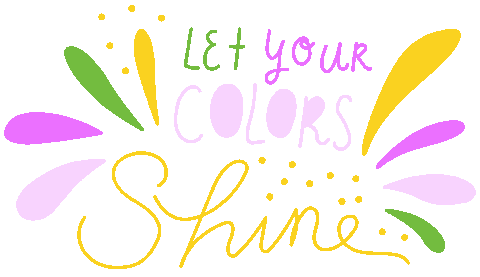 LET YOUR
COLORS
Shine